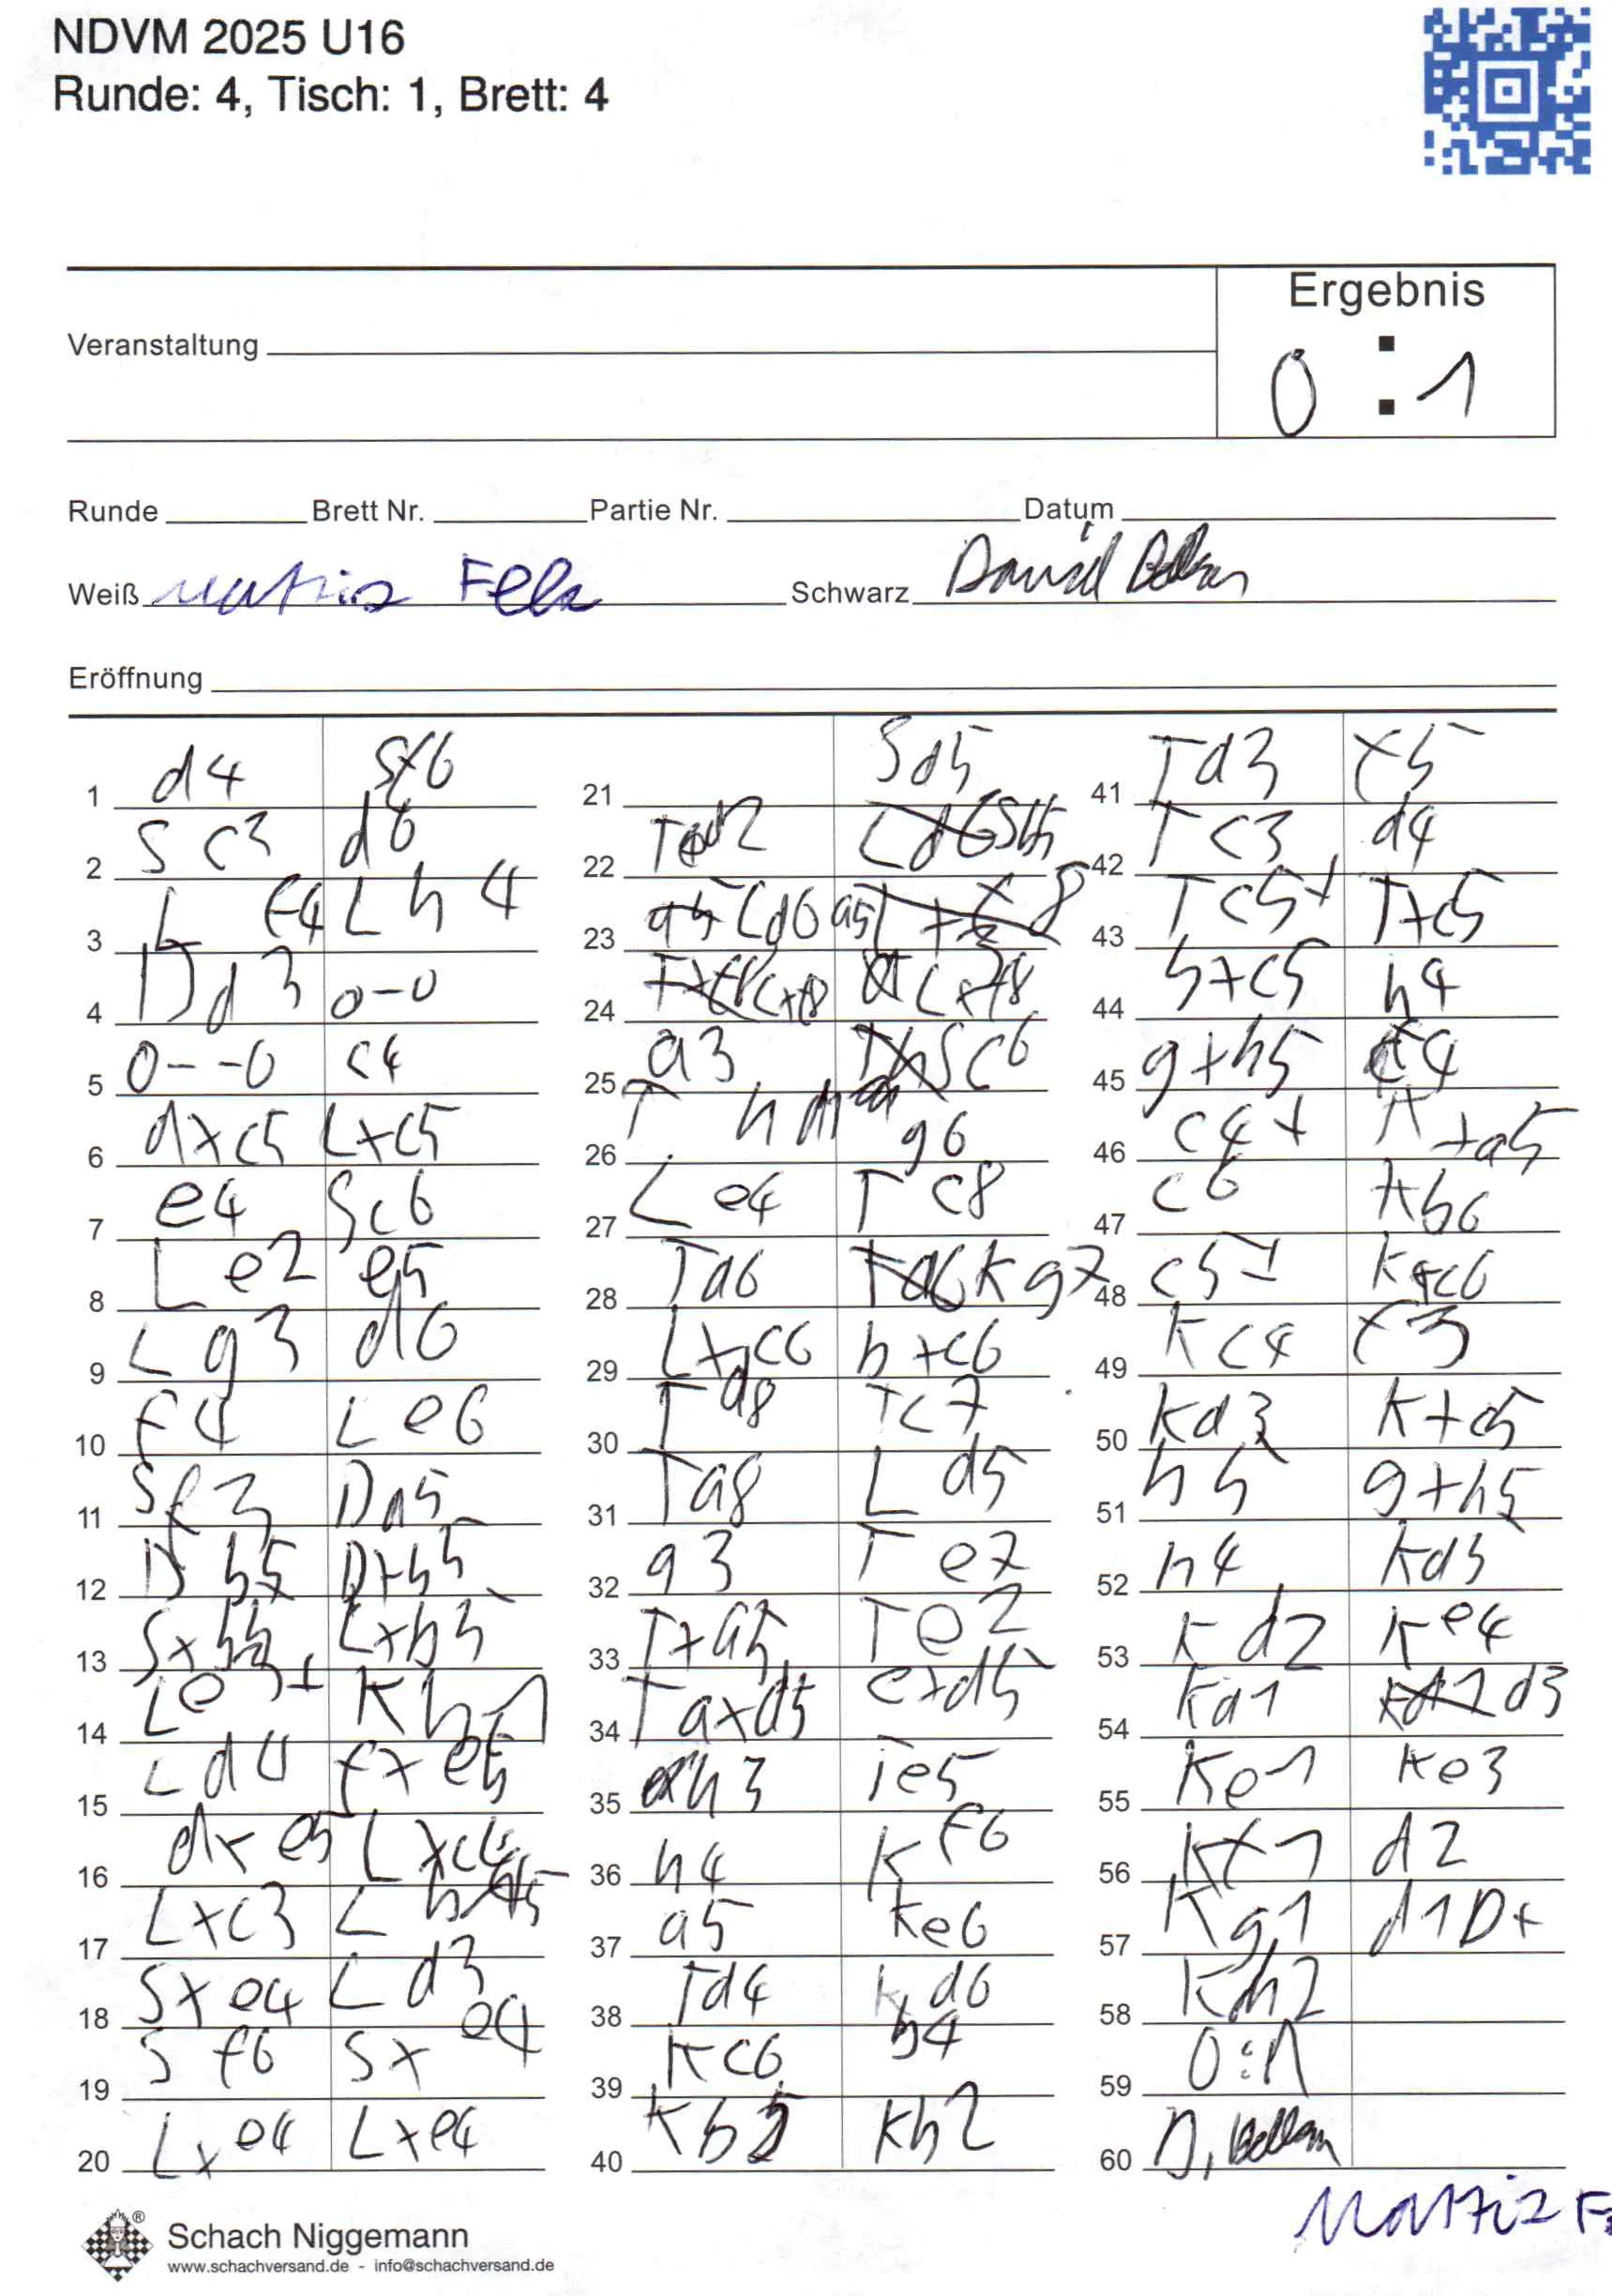 NDVM 2025 U16
Runde: 4, Tisch: 1, Brett: 4
Ergebnis
Veranstaltung
0 : 1
Runde Brett Nr. Partie Nr. Datum
Weiß Schwarz David
Eröffnung
1 d4 Sf6
2 Sc3 d6
3 L F4 Lh4
4 Dd3 0-0
5 0--0 c4
6 dxc5 Lxc5
7 e4 Sc6
8 Le2 e5
9 Lg3 d6
10 F4 Le6
11 Sf3 Da5
12 Db5 Dxb5
13 Sxb5 Lxb5
14 Le3+ Kh1
15 Ld4 fxe5
16 dxe5 Lxc4
17 Lxc3 L
18 Sxe4 Ld3
19 Sf6 Sxe4
20 Lxe4 Lxe4
21 Sd5
22 Td2 Sb5
23 Ld6 a5
24 Lxf8 Lxf8
25 a3 Sc6
26 T h g6
27 Le4 Tc8
28 Td6 Kg7
29 Lxc6 bxc6
30 Td8 Tc7
31 Ta8 Ld5
32 g3 Te7
33 Txa5 Te2
34 Taxd5 exd5
35 h3 Te5
36 h4 KF6
37 a5 Ke6
38 Td4 Kd6
39 Kc6 b4
40 Kb2 Kh2
41 Td3 f5
42 Tc3 d4
43 Tc5+ Txc5
44 bxc5 h4
45 gxh5 f4
46 c4+ +a5
47 c6 Kb6
48 c5+ Kxc6
49 Kc4 f3
50 Kd3 K+c5
51 h5 g+h5
52 h4 Kd5
53 Kd2 Ke4
54 Kd1 d3
55 Ke1 Ke3
56 Kf1 d2
57 Kg1 d1D+
58 Kh2
59 0:1
60 D.
Schach Niggemann
www.schachversand.de - info@schachversand.de